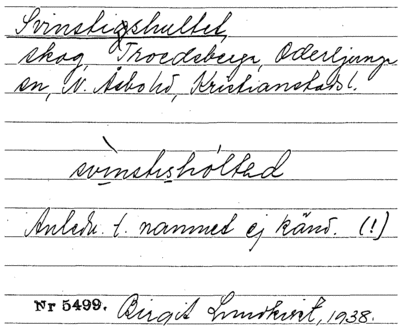 Svinstigshultet,
skog, Troedsberga, Oderljunga
sn, N. Åsbo hd, Kristianstads l.
svìnstishóĺtəd
Anledn. t. namnet ej känd. (!)
Nr 5499. Birgit Lundkvist, 1938.